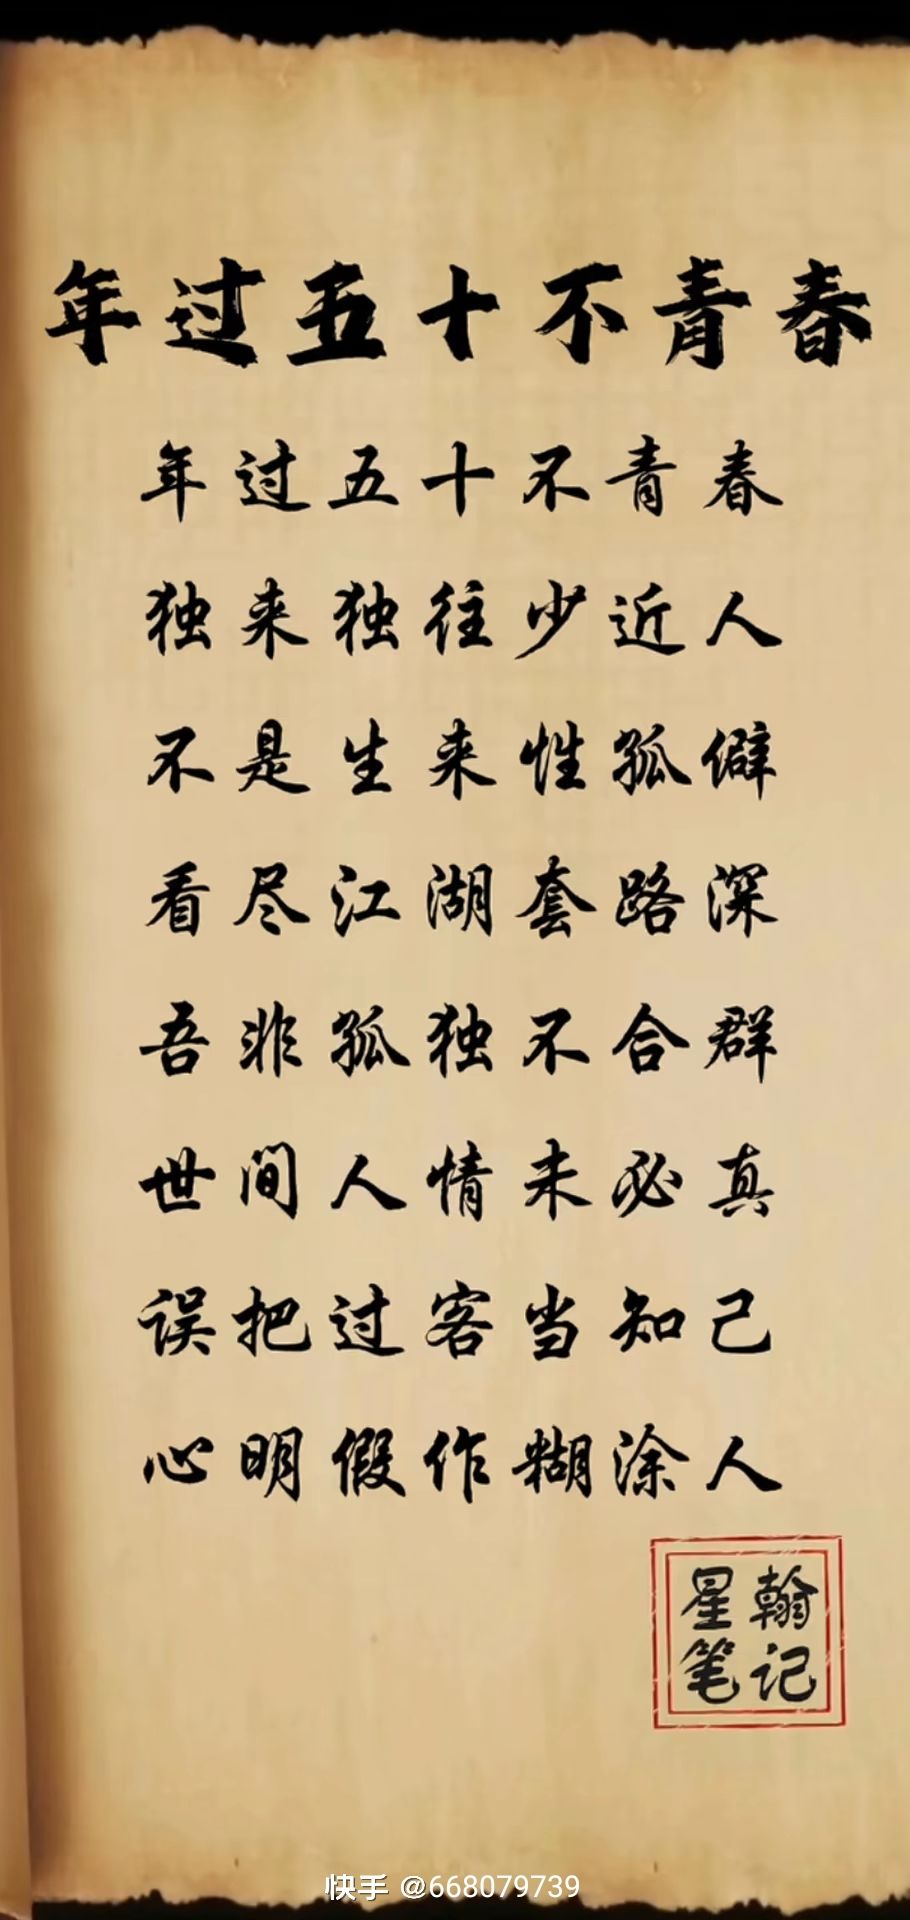 年过五十不青春
年过五十不青春
独来独往少近人
不是生来性孤僻
看尽江湖套路深
吾非孤独不合群
世间人情未必真
误把过客当知己
心明假作糊涂人
星翰
笔记
快手 @668079739